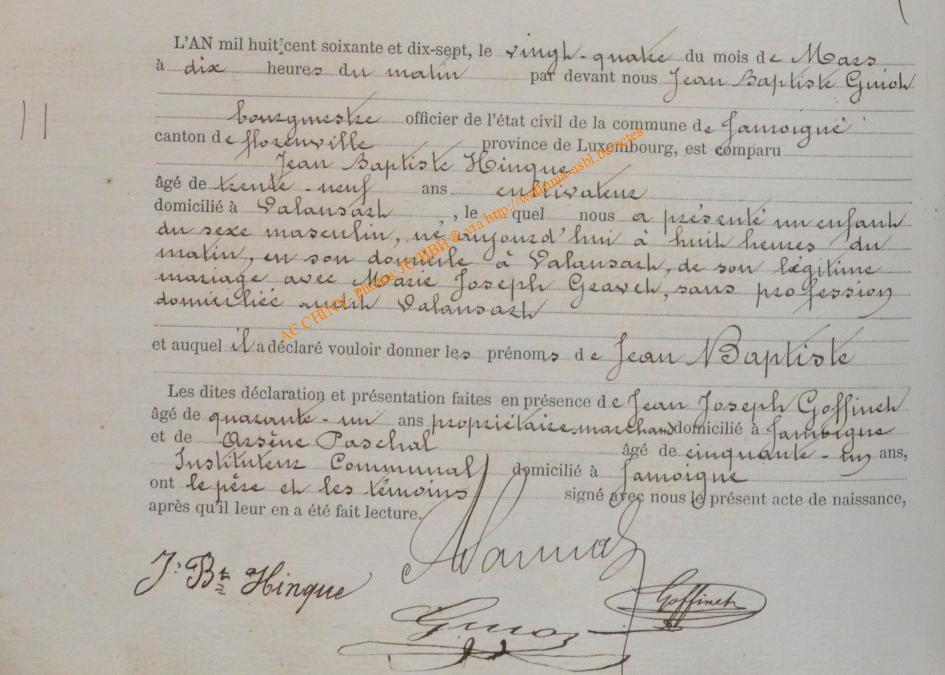 L'AN mil huit cent soixante et dix-sept, le vingt-quatre du mois de Mars
à dix heures du matin par devant nous Jean Baptiste Guiot
11
bourgmestre officier de l'état civil de la commune de Jamoigne
canton de florenville province de Luxembourg, est comparu
Jean Baptiste Hinque
âgé de trente-neuf ans cultivateur
domicilié à Valansart, lequel nous a présenté un enfant
du sexe masculin, né aujourd'hui à huit heures du
matin, en son domicile à Valansart, de son légitime
mariage avec Marie Joseph Gravet, sans profession
domiciliée audit Valansart
AC CHINY. Photos JC HBH @ via http://wallonia-asbl.be/actes
et auquel il a déclaré vouloir donner les prénoms de Jean Baptiste
Les dites déclaration et présentation faites en présence de Jean Joseph Goffinet
âgé de quarante-un ans propriétaire marchand domicilié à Jamoigne
et de Arsène Paschal âgé de cinquante-un ans,
Instituteur Communal domicilié à Jamoigne
ont le père et les témoins signé avec nous le présent acte de naissance,
après qu'il leur en a été fait lecture.
J. Bte Hinque
Goffinet
Guiot